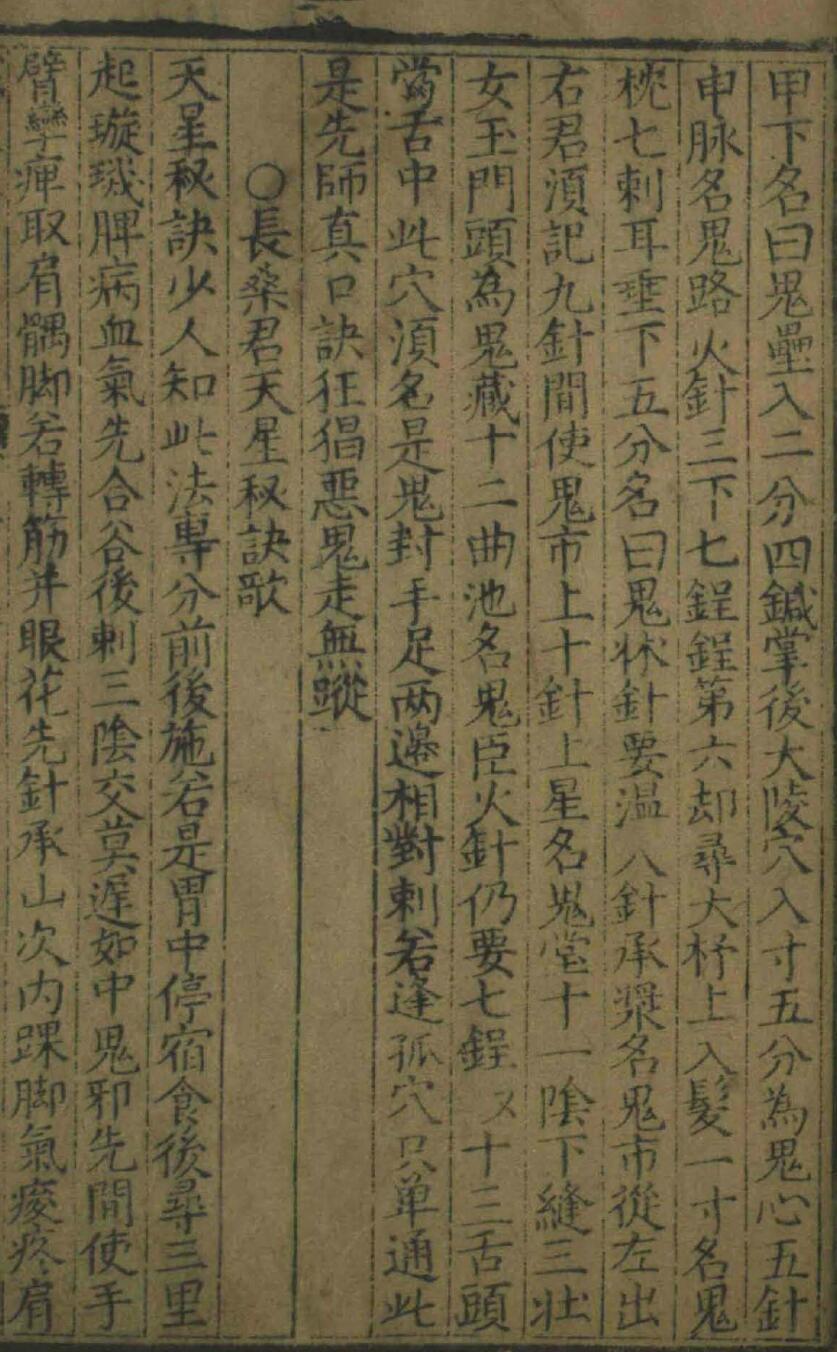 甲下名曰鬼壘入二分四鍼掌後大陵穴入寸五分為鬼心五針
申脉名鬼路火針三下七鋥鋥第六却尋大杼上入髮一寸名鬼
枕七刺耳垂下五分名曰鬼牀針要温八針承漿名鬼市從左出
右君須記九針間使鬼市上十針上星名鬼堂十一陰下縫三壯
女玉門頭為鬼藏十二曲池名鬼臣火針仍要七鋥又十三舌頭
當舌中此穴須名是鬼封手足两邉相對刺若逢孤穴只单通此
是先師真口訣狂猖惡鬼走無蹤
○長桑君天星秘訣歌
天星秘訣少人知此法專分前後施若是胃中停宿食後尋三里
起璇璣脾病血氣先合谷後刺三陰交莫遲如中鬼邪先間使手
臂攣痺取肩髃脚若轉筋并眼花先針承山次内踝脚氣痠疼肩